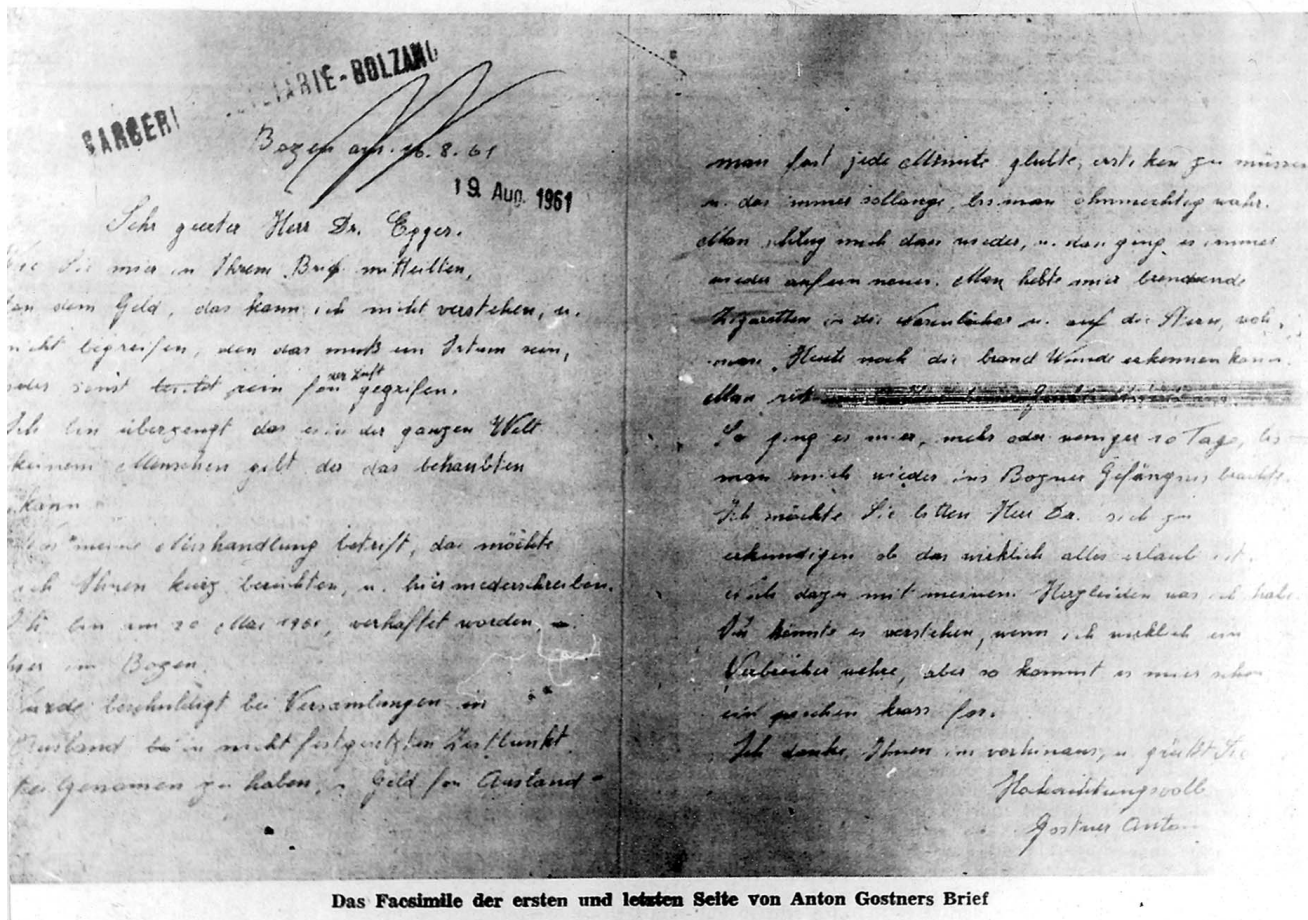 CARCERI IARIE-BOLZANO
Bozen am. 16.8.61
19. Aug. 1961
Sehr geerter Herr Dr. Egger.
Wie Sie mier in Ihrem Brif mitteilten,
an dem Geld, das kann ich nicht verstehen, u.
nicht begreifen, den das muß ein Irtum sein,
oder sonst rein fon der Luft gegrifen.
Ich bin überzeugt das es in der ganzen Welt
keinem Menschen gibt der das behaubten
kann
Was meine Mishandlung betrift, da möchte
ich Ihnen kurz berichten, u. hier niederschreiben.
Ich bin am 20 Mai 1961, verhaftet worden,
hier in Bozen,
wurde beschuldigt bei Versamlungen in
Ausland bei in nicht festgesetzten Zeitbunkt
teilgenomen zu haben, u. Geld fon Ausland-
man fast jede Minute glubte, ersticken zu müssen
u. das immer sollange, bis man ohnmechtig wahr.
Man schlug mich dan wieder, u. dan ging es immer
wieder auf ein neues. Man hebte mier brennende
Zigaretten in die Nasenlöcher u. auf die Stirn,
man Heute noch die brand Wunde erkennen kann.
Man
So ging es mier, mehr oder weniger 10 Tage, bis
man mich wieder ins Bozner Gefängnis brachte.
Ich möchte Sie bitten Herr Dr. sich zu
erkundigen ob das wirklich alles erlaubt ist.
auch dazu mit meinem Herzleiden was ich habe.
könnte es verstehen, wenn ich wirklich ein
Verbrecher wehre, aber so kommt es mier schon
ein krass for.
Ich danke Ihnen im vorhinaus, u. grüßt Sie
Hochachtungsvoll
Gostner Anton
Das Facsimile der ersten und letzten Seite von Anton Gostners Brief